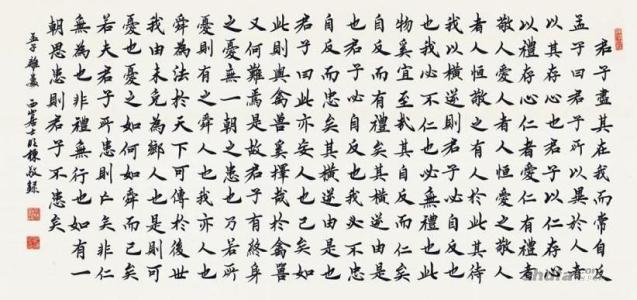 君子盡其在我而常自反
孟子曰君子所以異於人者
以其存心也君子以仁存心
以禮存心仁者愛人有禮者
敬人愛人者人恒愛之敬人
者人恒敬之有人於此其待
我以橫逆則君子必自反也
我必不仁也必無禮也此
物奚宜至哉其自反而仁矣
自反而有禮矣其橫逆由是
也君子必自反也我必不忠
自反而忠矣其橫逆由是也
君子曰此亦妄人也已矣如
此則與禽獸奚擇哉於禽獸
又何難焉是故君子有終身
之憂無一朝之患也乃若所
憂則有之舜人也我亦人也
舜為法於天下可傳於後世
我由未免為鄉人也是則可
憂也憂之如何如舜而已矣
若夫君子所患則亡矣非仁
無為也非禮無行也如有一
朝思患則君子不患矣
孟子離婁